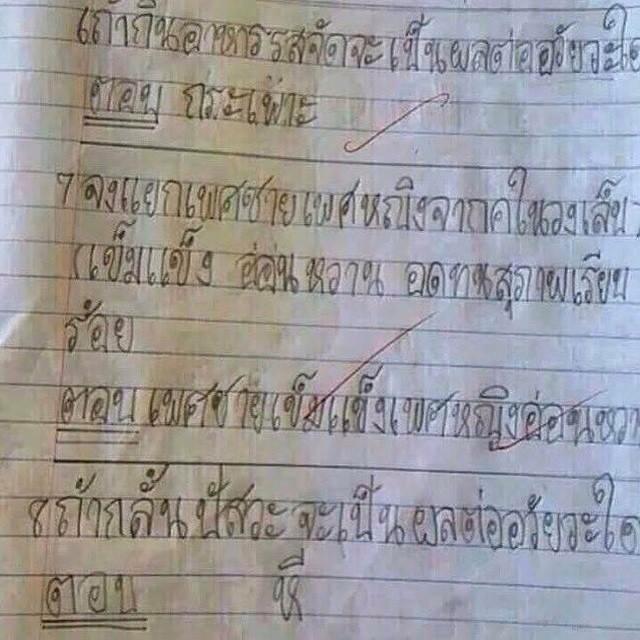 ถ้ากินอาหารรสจัดจะเป็นผลต่ออวัยวะใด
ตอบ กระเพาะ
7 จงแยกเพศชายเพศหญิงจากคำในวงเล็บ
(เข้มแข็ง อ่อนหวาน อดทนสุภาพเรียบ
ร้อย
ตอบ เพศชายเข้มแข็งเพศหญิงอ่อนหวา
8 ถ้ากลั้นปัสวะจะเป็นผลต่ออวัยวะใด
ตอบ หี